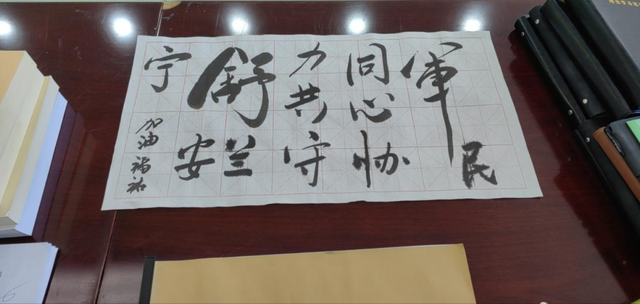 军民
同心协
力共守
舒兰
安
宁
加油